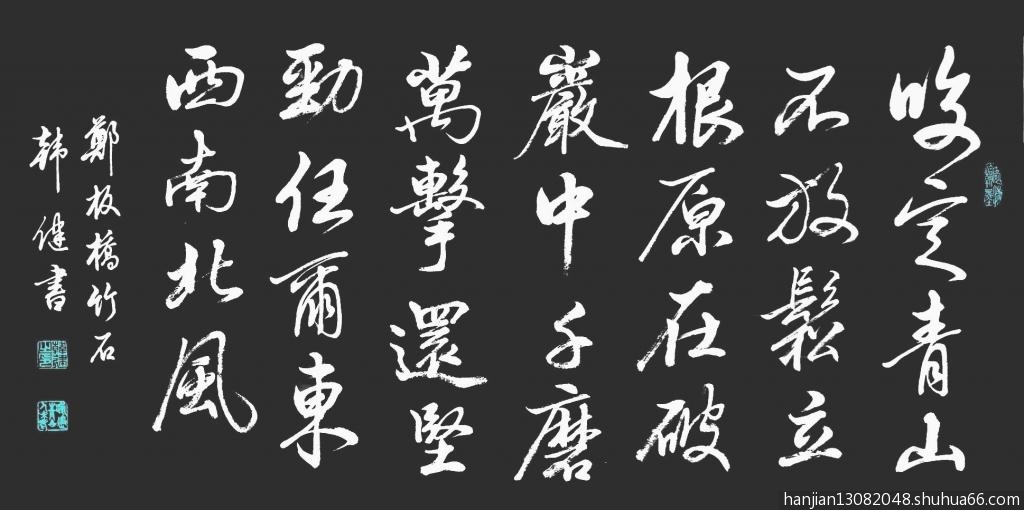 咬定青山
不放鬆立
根原在破
巖中千磨
萬擊還堅
勁任爾東
西南北風
鄭板橋竹石
韩健書
hanjian13082048.shuhua66.com